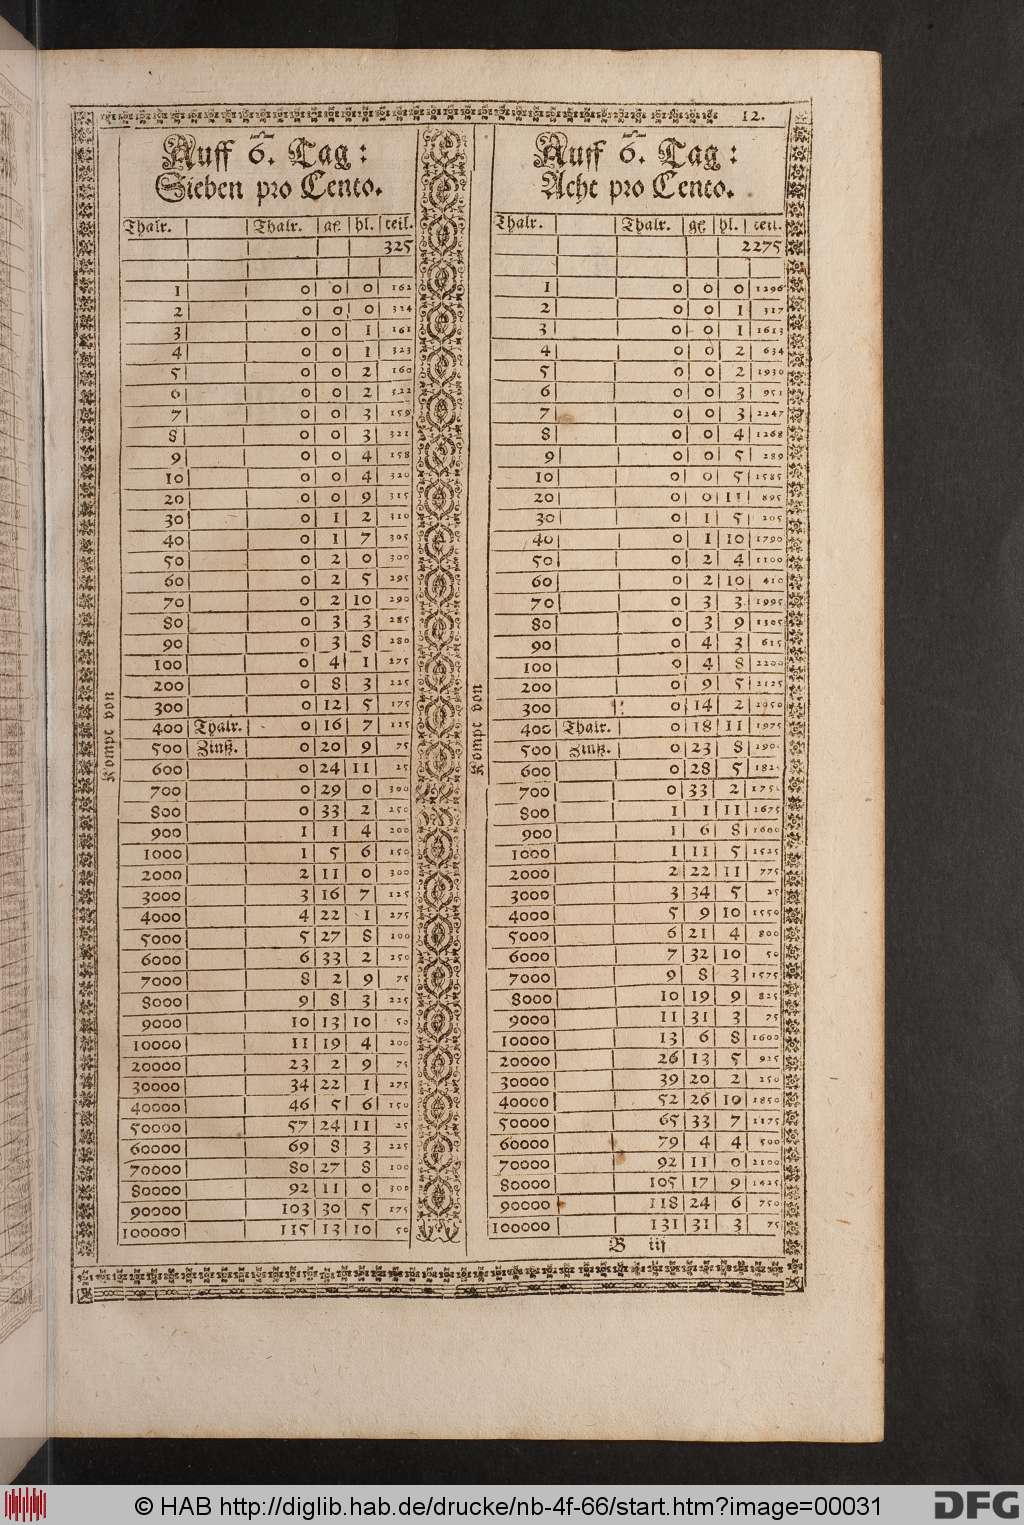 12.
Auff 6. Tag:
Sieben pro Cento.
Thalr. Thalr. gℓ hl. teil.
325
1 0 0 0 162
2 0 0 0 324
3 0 0 1 161
4 0 0 1 323
5 0 0 2 160
6 0 0 2 322
7 0 0 3 159
8 0 0 3 321
9 0 0 4 158
10 0 0 4 320
20 0 0 9 315
30 0 1 2 310
40 0 1 7 305
50 0 2 0 300
60 0 2 5 295
70 0 2 10 290
80 0 3 3 285
90 0 3 8 280
100 0 4 1 275
200 0 8 3 225
300 0 12 5 175
400 Thalr. 0 16 7 125
500 Zinß. 0 20 9 75
600 0 24 11 25
700 0 29 0 300
800 0 33 2 250
900 1 1 4 200
1000 1 5 6 150
2000 2 11 0 300
3000 3 16 7 125
4000 4 22 1 275
5000 5 27 8 100
6000 6 33 2 250
7000 8 2 9 75
8000 9 8 3 225
9000 10 13 10 50
10000 11 19 4 200
20000 23 2 9 75
30000 34 22 1 275
40000 46 5 6 150
50000 57 24 11 25
60000 69 8 3 225
70000 80 27 8 100
80000 92 11 0 300
90000 103 30 5 175
100000 115 13 10 50
Kompt von
Auff 6. Tag:
Acht pro Cento.
Thalr. Thalr. gℓ hl. teil.
2275
1 0 0 0 1296
2 0 0 1 317
3 0 0 1 1613
4 0 0 2 634
5 0 0 2 1930
6 0 0 3 951
7 0 0 3 2247
8 0 0 4 1268
9 0 0 5 289
10 0 0 5 1585
20 0 0 11 895
30 0 1 5 205
40 0 1 10 1790
50 0 2 4 1100
60 0 2 10 410
70 0 3 3 1995
80 0 3 9 1305
90 0 4 3 615
100 0 4 8 2200
200 0 9 5 2125
300 0 14 2 2050
400 Thalr. 0 18 11 1975
500 Zinß. 0 23 8
600 0 28 5
700 0 33 2
800 1 1 11 1675
900 1 6 8 1600
1000 1 11 5 1525
2000 2 22 11 775
3000 3 34 5 25
4000 5 9 10 1550
5000 6 21 4 800
6000 7 32 10 50
7000 9 8 3 1575
8000 10 19 9 825
9000 11 31 3 75
10000 13 6 8 1600
20000 26 13 5 925
30000 39 20 2 250
40000 52 26 10 1850
50000 65 33 7 1175
60000 79 4 4 500
70000 92 11 0 2100
80000 105 17 9 1425
90000 118 24 6 750
100000 131 31 3 75
Kompt von
B iij
© HAB http://diglib.hab.de/drucke/nb-4f-66/start.htm?image=00031
DFG